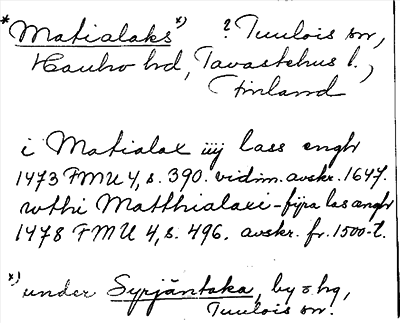 *Matialaks *) ? Tuulois sn,
Hauho hd, Tavastehus l.,
Finland
i Matialax iiij lass engh
1473 FMU 4, s. 390. vidim. avskr. 1647.
wthi Matthialaxi - fyra las ængh
1478 FMU 4, s. 496. avskr. fr. 1500-t.
*) under Syrjäntaka, by o hg,
Tuulois sn.